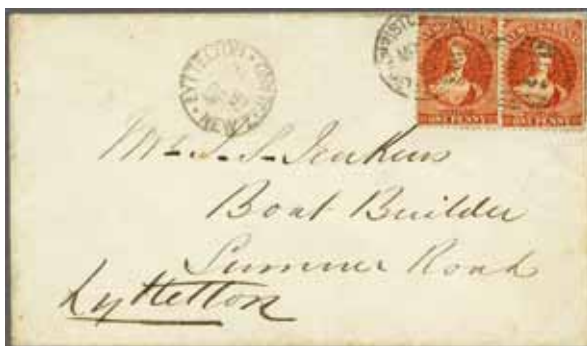 LYTTELTON
NEW Z
ONE PENNY ONE PENNY
Mr S. S. Jenkins
Boat Builder
Sumner Road
Lyttelton